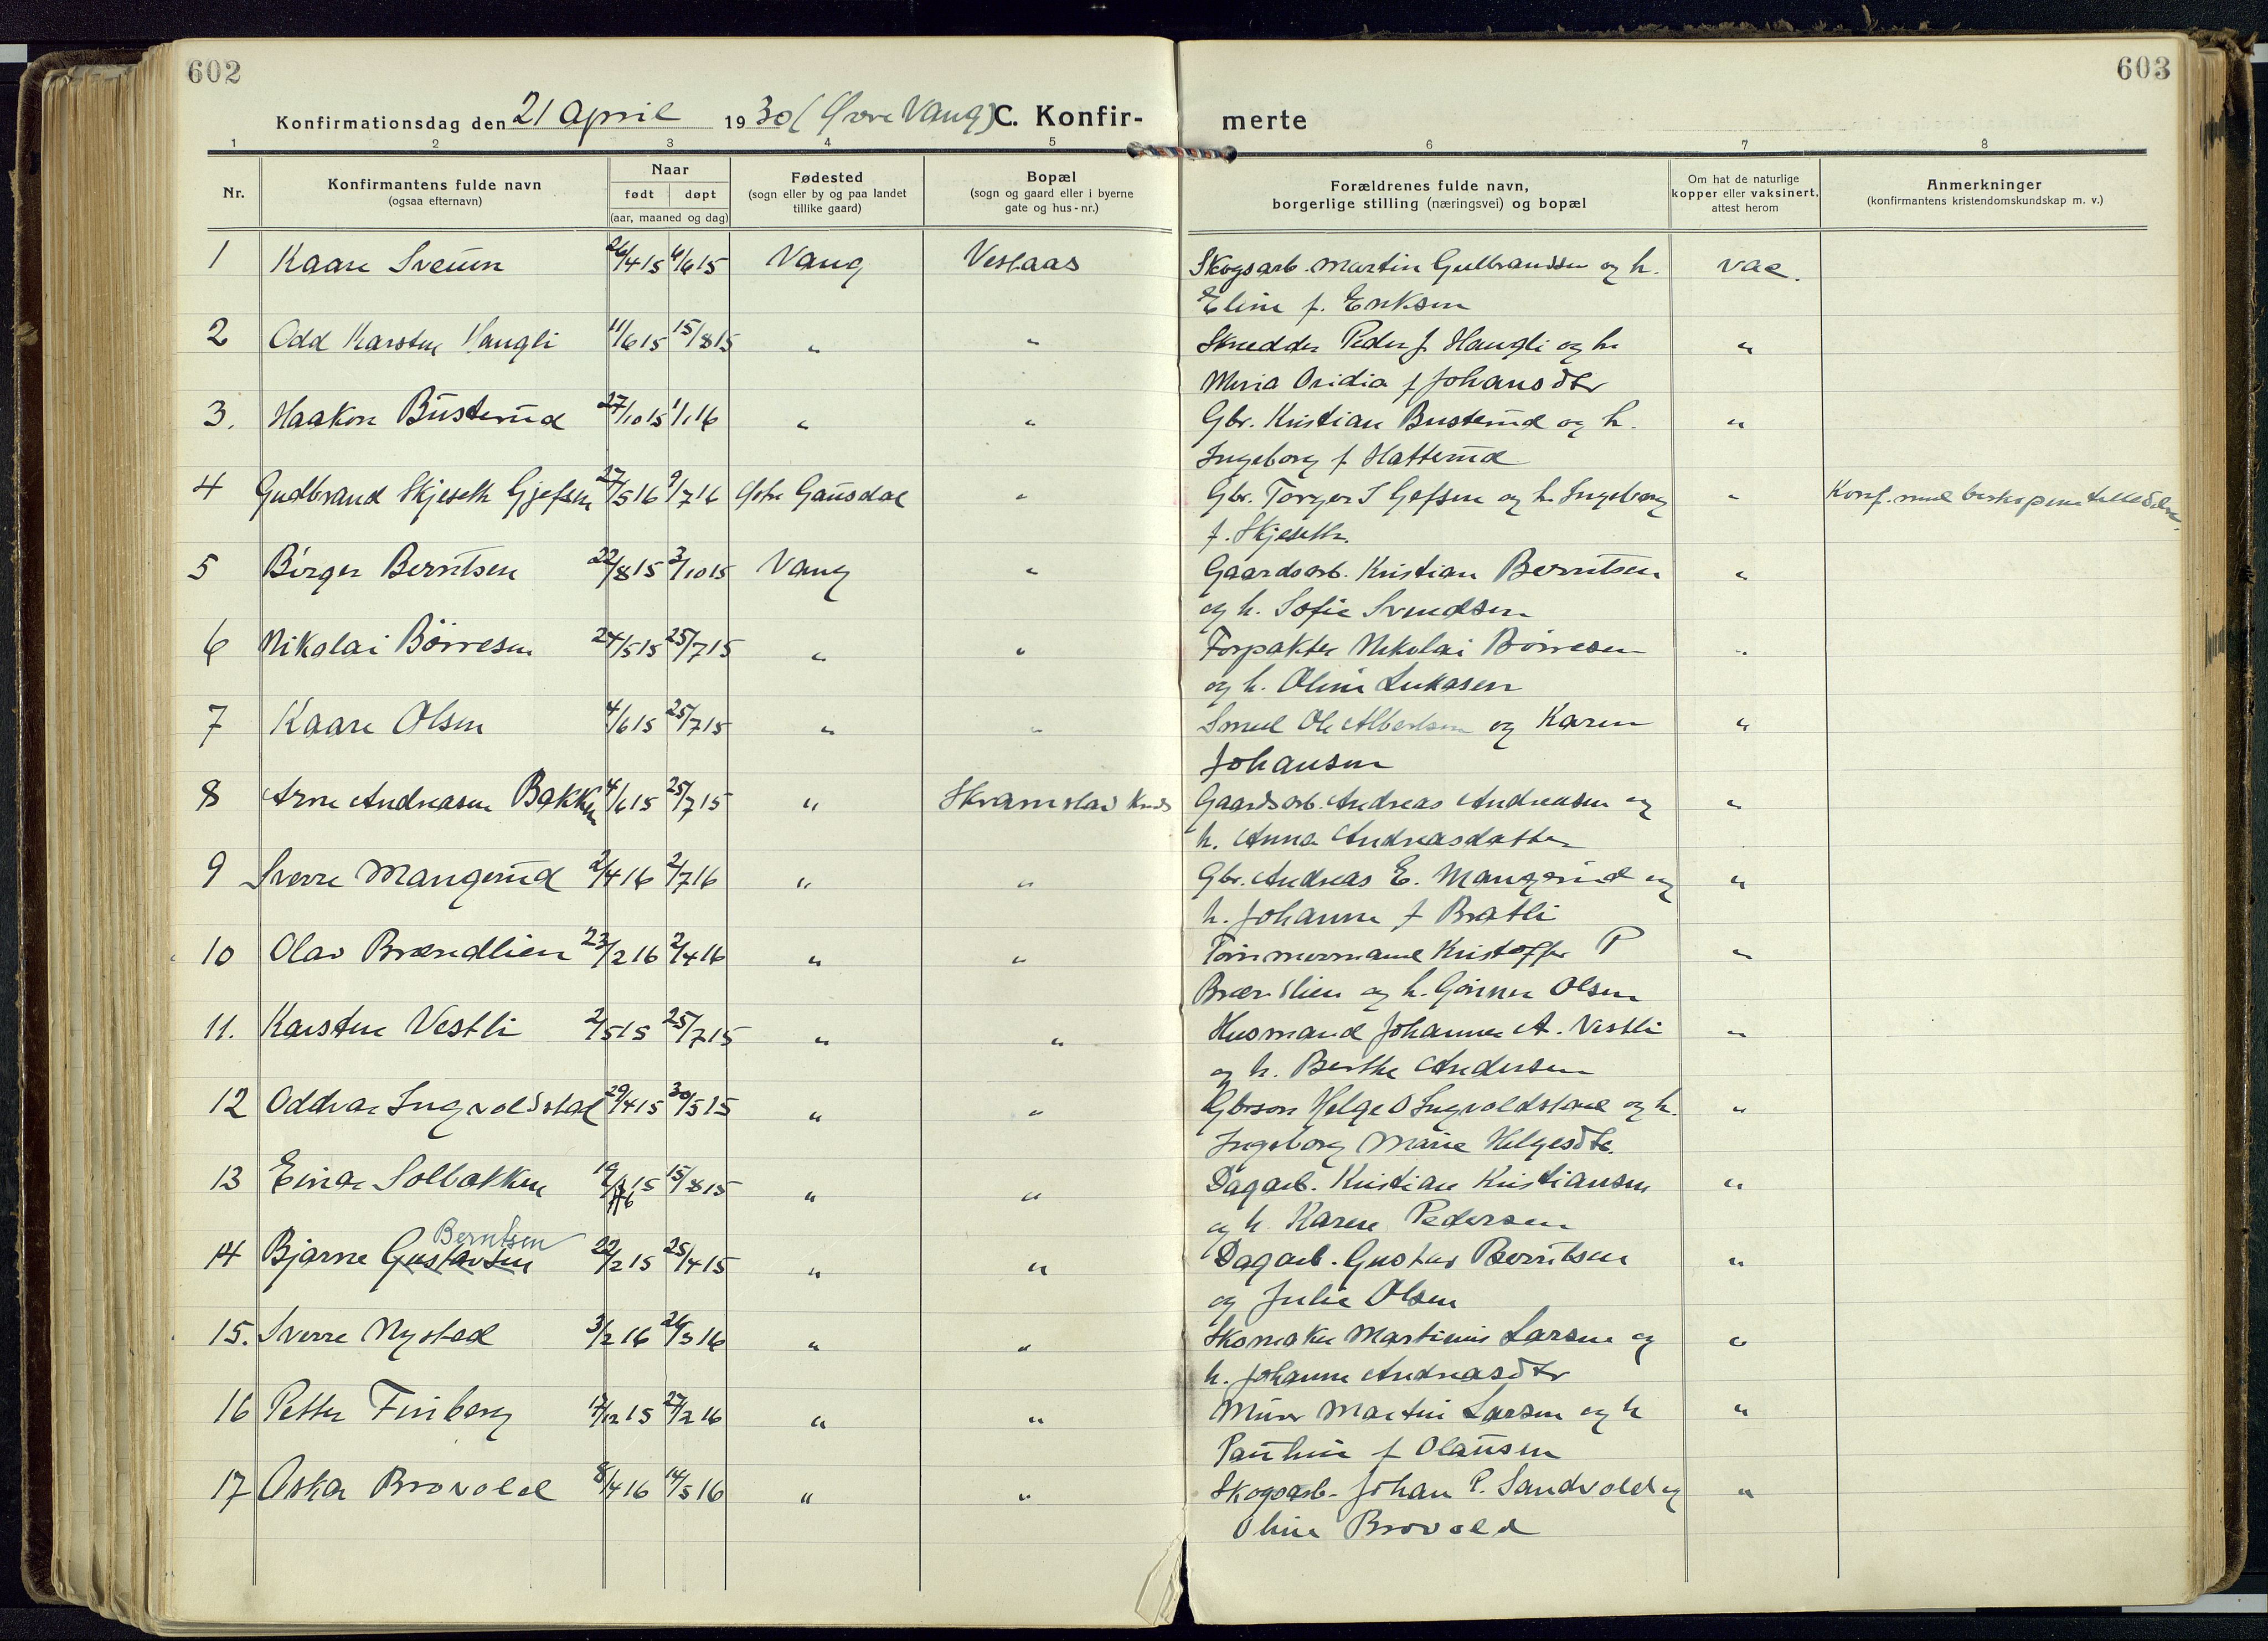 602
603
Konfirmationsdag den 21 April 1930 (Øvre Vang) C. Konfirmerte
1 2 3 4 5 6 7 8
Nr.
Konfirmantens fulde navn
(ogsaa efternavn)
Naar
født døpt
(aar, maaned og dag)
Fødested
(sogn eller by og paa landet
tillike gaard)
Bopæl
(sogn og gaard eller i byerne
gate og hus-nr.)
Forældrenes fulde navn,
borgerlige stilling (næringsvei) og bopæl
Om hat de naturlige
kopper eller vaksinert,
attest herom
Anmerkninger
(konfirmantens kristendomskundskap m. v.)
1 Kaare Sveum 26/4 15 6/6 15 Vang Veslaas Skogsarb. Martin Gulbrandsen og h. vac.
Eline f. Eriksen
2 Odd Karsten Haugli 11/6 15 15/8 15 " " Skredder Peder J. Haugli og h. "
Ovidia f Johansdtr
3. Haakon Busterud 27/10 15 1/1 16 " " Gbr. Kristian Busterud og h. "
Ingeborg f Hatterud
4 Gudbrand Skjeseth Gjefsen 27/5 16 9/7 16 Østre Gausdal " Gbr. Torger S Gjefsen og h. Ingeborg " Konf. med biskopens tilladelse.
f. Skjeseth.
5 Birger Berntsen 22/8 15 3/10 15 Vang " Gaardsarb. Kristian Berntsen "
og h. Sofie Svendsen
6 Nikolai Börresen 24/5 15 25/7 15 " " Forpakter Nikolai Börresen "
og h. Oline Lukasen
7 Kaare Olsen 4/6 15 25/7 15 " " Smed Ole Albertsen og Karen "
Johansen
8 Arne Andreasen Bakken 4/6 15 25/7 15 " Skramstad Gaardsarb. Andreas Andreasen og "
h. Anna Andreasdatter
9 Sverre Mangerud 2/4 16 2/7 16 " " Gbr. Andreas E. Mangerud og "
h. Johanne f Bratli
10 Olav Brændlien 23/2 16 2/4 16 " " Tømmermand Kristoffer P "
Brændlien og h. Olsen
11. Karsten Vestli 2/5 15 25/7 15 " " Husmand Johannes A. Vestli "
og h. Berthe Andersen
12 Oddvar Ingvoldstad 29/4 15 30/5 15 " " Gbrson Helge O Ingvoldstad og h. "
Ingeborg Marie Helgesdtr.
13 Einar Solbakken 15 15/8 15 " " Dagarb. Kristian Kristiansen "
og h. Karen Pedersen
Berntsen
14 Bjarne Gustavsen 22/2 15 25/4 15 " " Dagarb. Gustav Berntsen "
og Julie Olsen
15. Sverre Nystad 3/2 16 26/3 16 " " Skomaker Martinus Larsen og "
h. Johanne Andreasdtr
16 Petter Finberg 17/12 15 27/2 16 " " Murer Martin Larsen og h "
Pauline f Olausen
17 Oskar Brovold 8/4 16 14/5 16 " " Skogsarb. Johan P. Sandvold og "
Oline Brovold